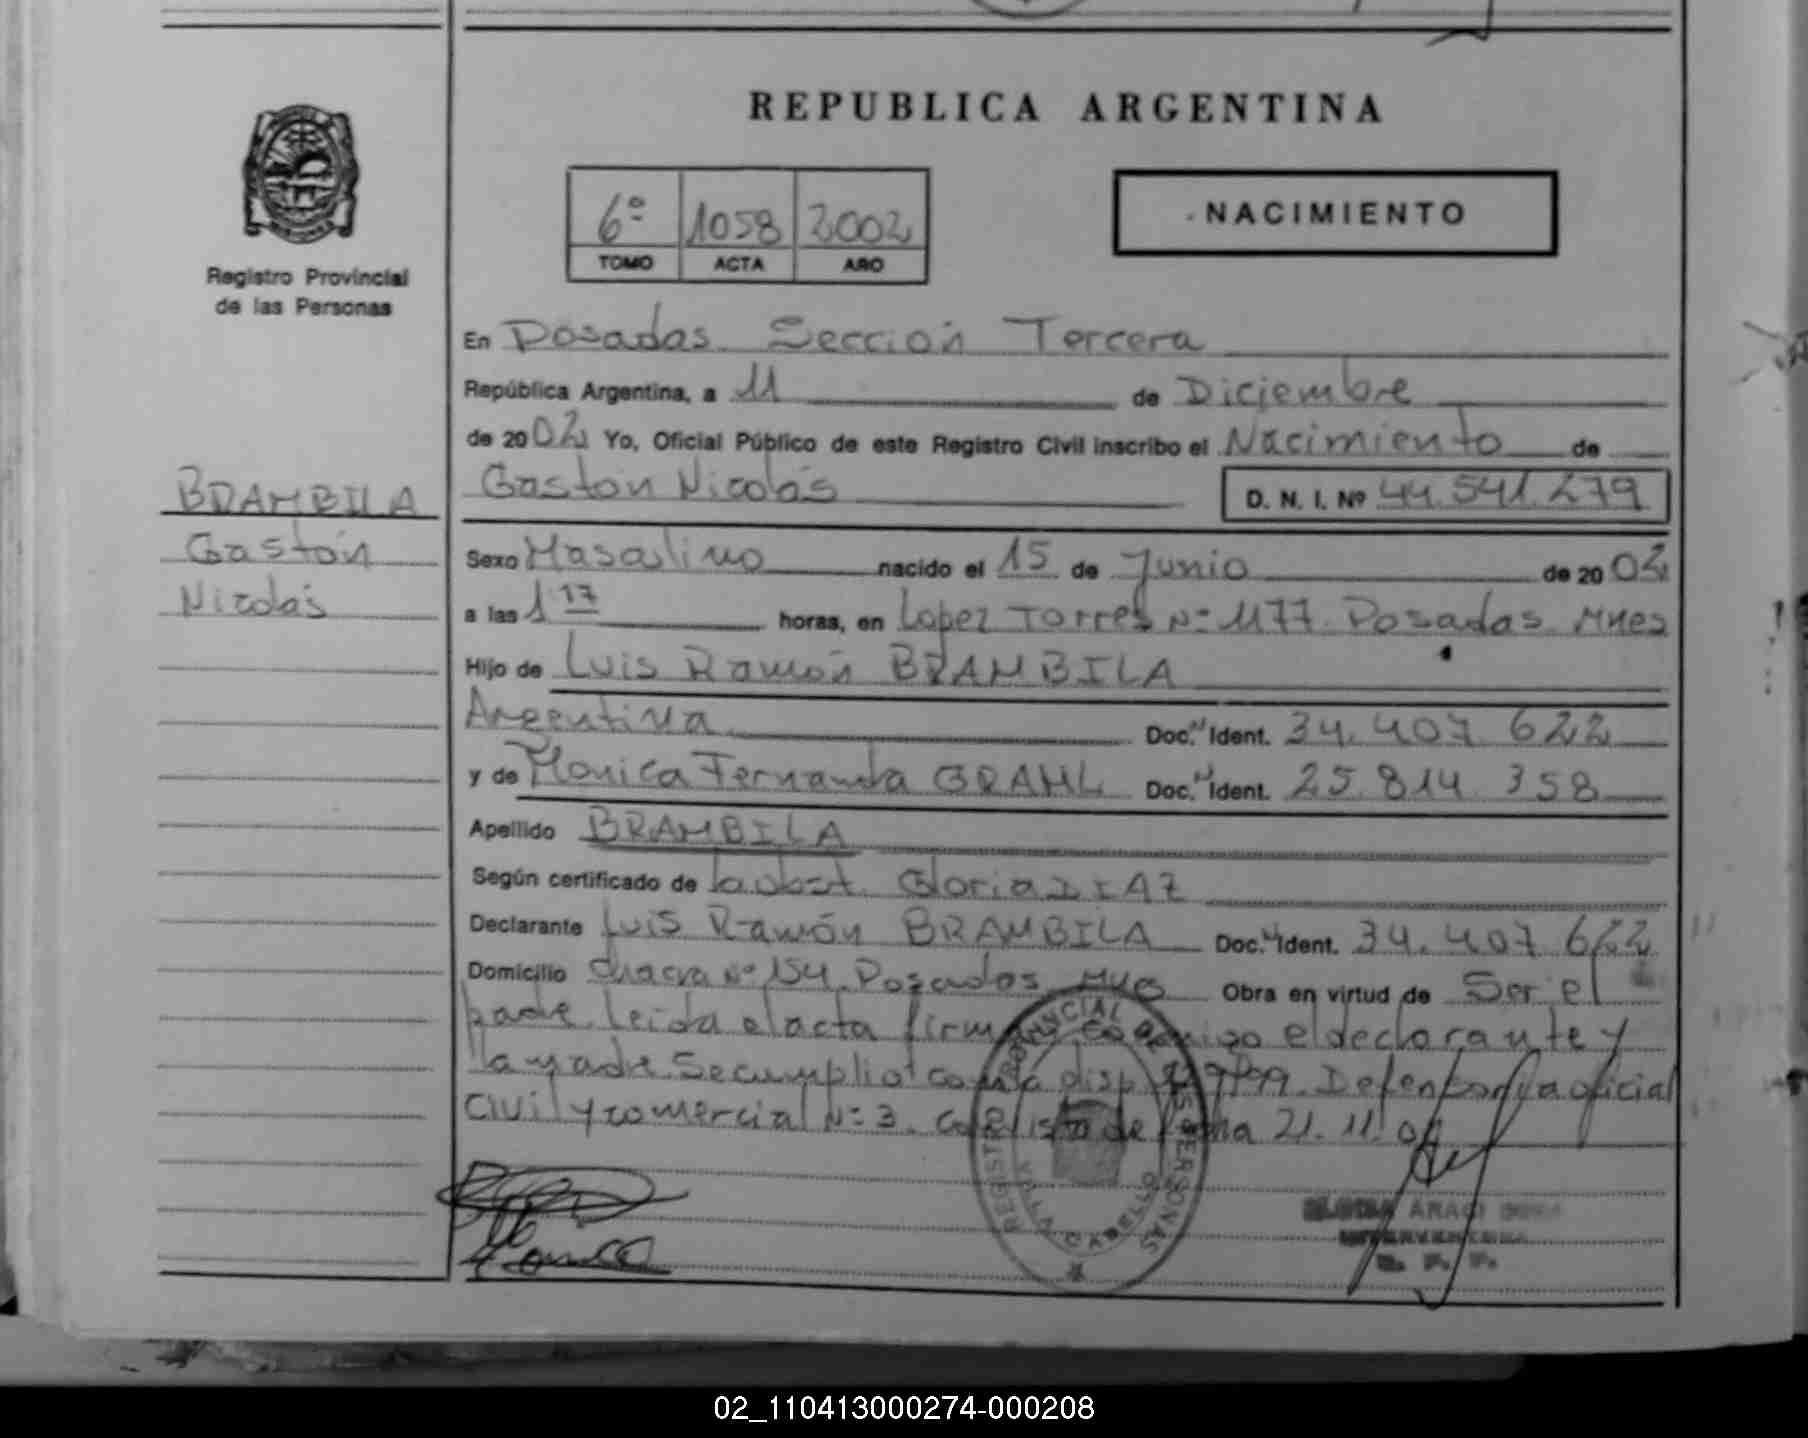 REPUBLICA ARGENTINA
6º 1058 2002
TOMO ACTA AÑO
NACIMIENTO
Registro Provincial
de las Personas
En Posadas Sección Tercera
República Argentina, a 11 de Diciembre
de 2002 Yo, Oficial Público de este Registro Civil inscribo el Nacimiento de
BRAMBILA
Gastón
Nicolás
Gastón Nicolás D. N. I. Nº 44.541.279
Sexo Masculino nacido el 15 de Junio de 2002
a las 1 17 horas, en Lopez Torres Nº 1177. Posadas Mnes
Hijo de Luis Ramón BRAMBILA
Argentina Doc. Ident. 34.407.622
y de Monica Fernanda GRAHL Doc. Ident. 25.814.358
Apellido BRAMBILA
Según certificado de la obst. Gloria DIAZ
Declarante Luis Ramón BRAMBILA Doc. Ident. 34.407.622
Domicilio Chacra Nº 154. Posadas Mnes Obra en virtud de Ser el
padre. Leida el acta firman conmigo el declarante y
la madre. Se cumplió con la disp. Defensoría oficial
Civil y comercial Nº 3. de fecha 21.11.
REGISTRO PROVINCIAL DE LAS PERSONAS
VILLA CABELLO
02_110413000274-000208